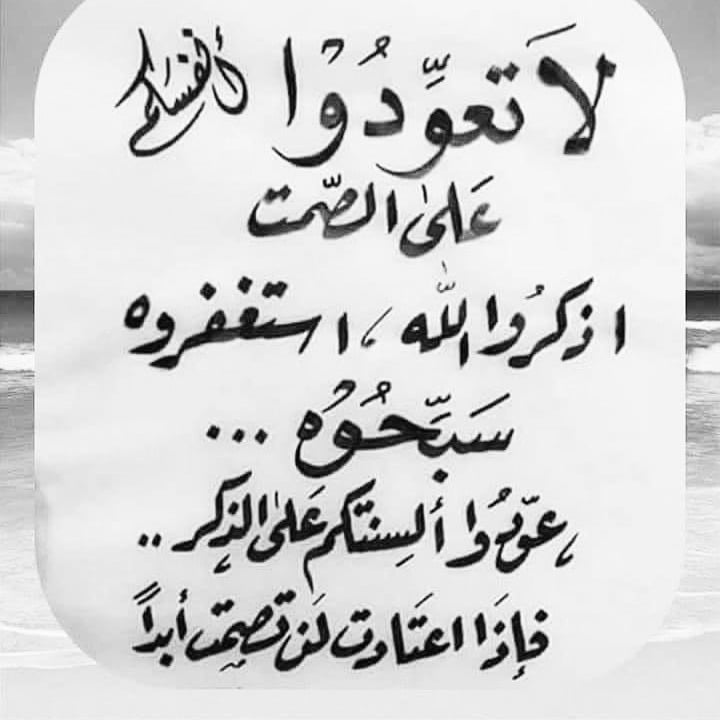 لَا تعوِّدُوْا أنفسَكم
عَلىٰ الصّمت
اذكرُوا اللّٰه ، استغفروه
سَبِّحُوْه ...
، عوّدُوا ألسِنتكم عَلىٰ الذِكر ..
فإذَا اعتَادت لَن تصمِت أبداً